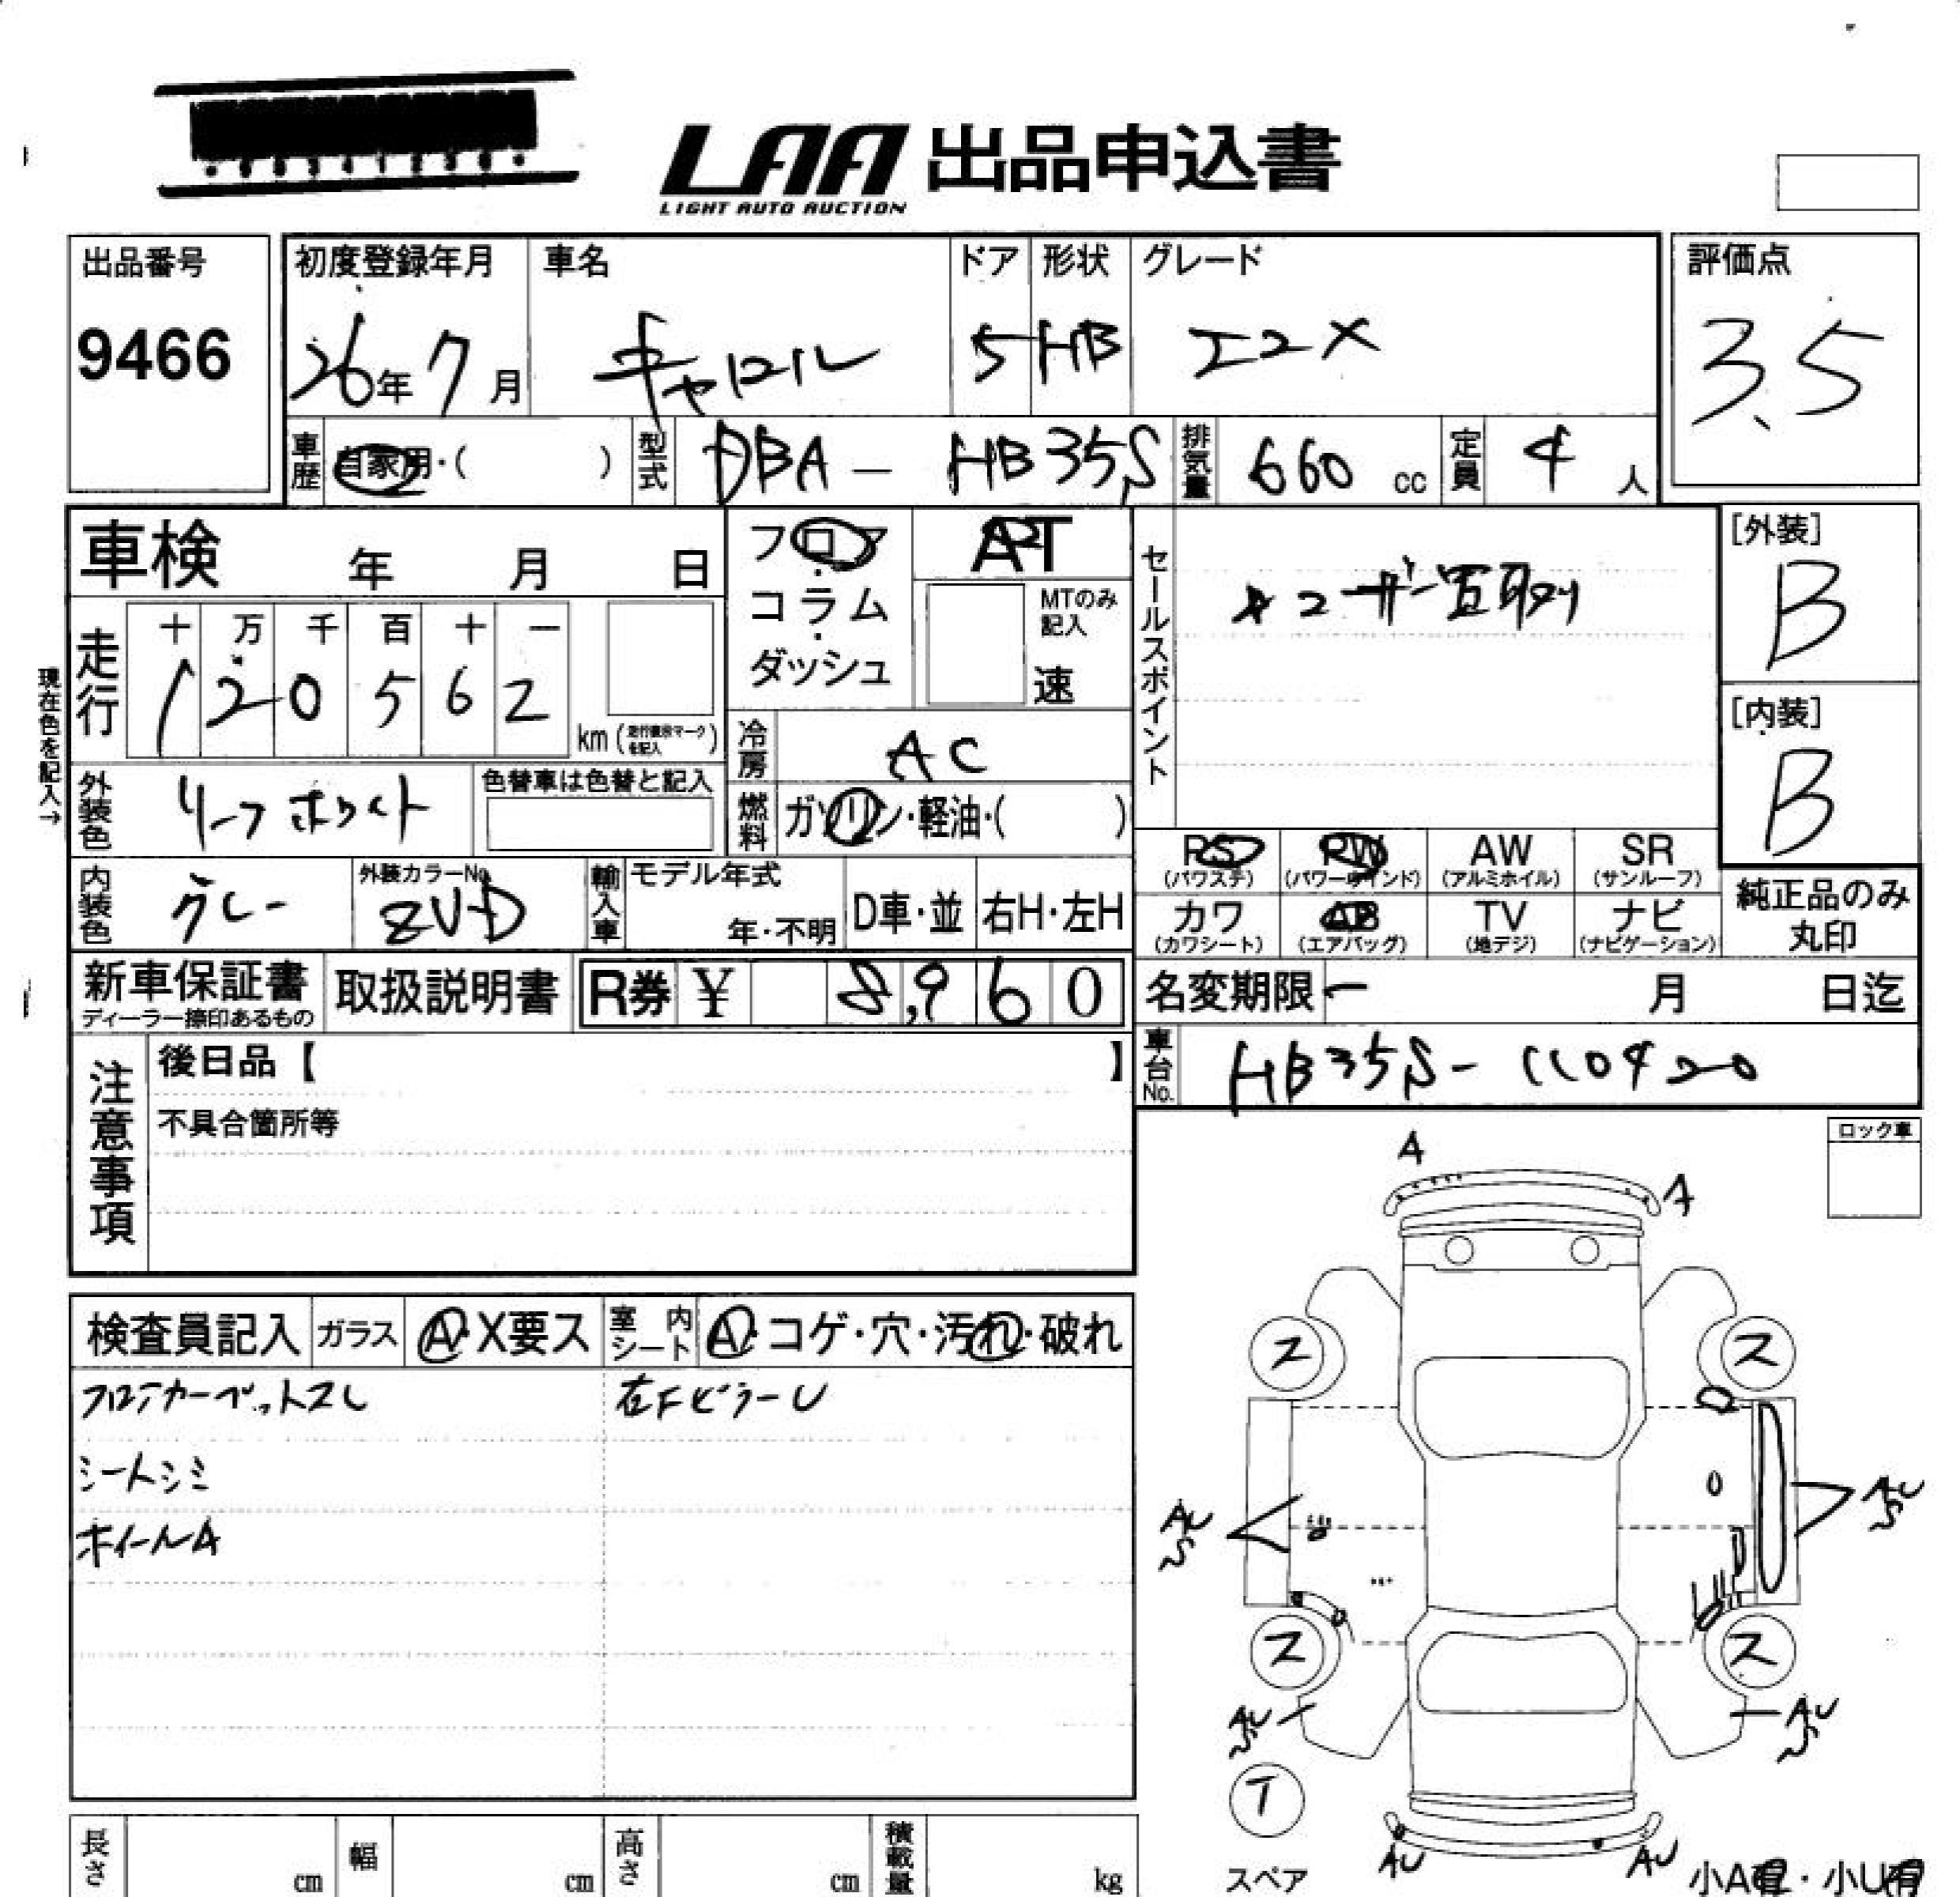 LAA 出品申込書
LIGHT AUTO AUCTION
出品番号
9466
初度登録年月
26年 7月
車名
キャロル
ドア
5
形状
HB
グレード
エコX
評価点
3.5
車歴
自家用・( )
型式
DBA - HB35S
排気量
660 cc
定員
4 人
車検 年 月 日
フロア・コラム・ダッシュ
AT
MTのみ記入
速
セールスポイント
ユーザー買取り
[外装]
B
[内装]
B
現在色を記入→
走行
十 万 千 百 十 一
1 2 0 5 6 2
km (走行表示マークを記入)
冷房
AC
外装色
リーフホワイト
色替車は色替と記入
燃料
ガソリン・軽油・( )
内装色
グレー
外装カラーNo.
ZUD
輸入車
モデル年式
年・不明
D車・並
右H・左H
PS (パワステ)
PW (パワーウインド)
AW (アルミホイル)
SR (サンルーフ)
カワ (カワシート)
AB (エアバッグ)
TV (地デジ)
ナビ (ナビゲーション)
純正品のみ丸印
新車保証書
ディーラー捺印あるもの
取扱説明書
R券 ¥ 8,960
名変期限 ー 月 日迄
車台No.
HB35S-110420
注意事項
後日品【 】
不具合箇所等
ロック車
検査員記入
ガラス
A・X要ス
室内シート
A・コゲ・穴・汚れ・破れ
フロアカーペットスレ
右FピラーU
シートシミ
ホイールA
A
A
ス
ス
AU
S
AU
S
ス
ス
AU
S
AU
S
T
スペア
AU
AU
小A有・小U有
長さ cm
幅 cm
高さ cm
積載量 kg